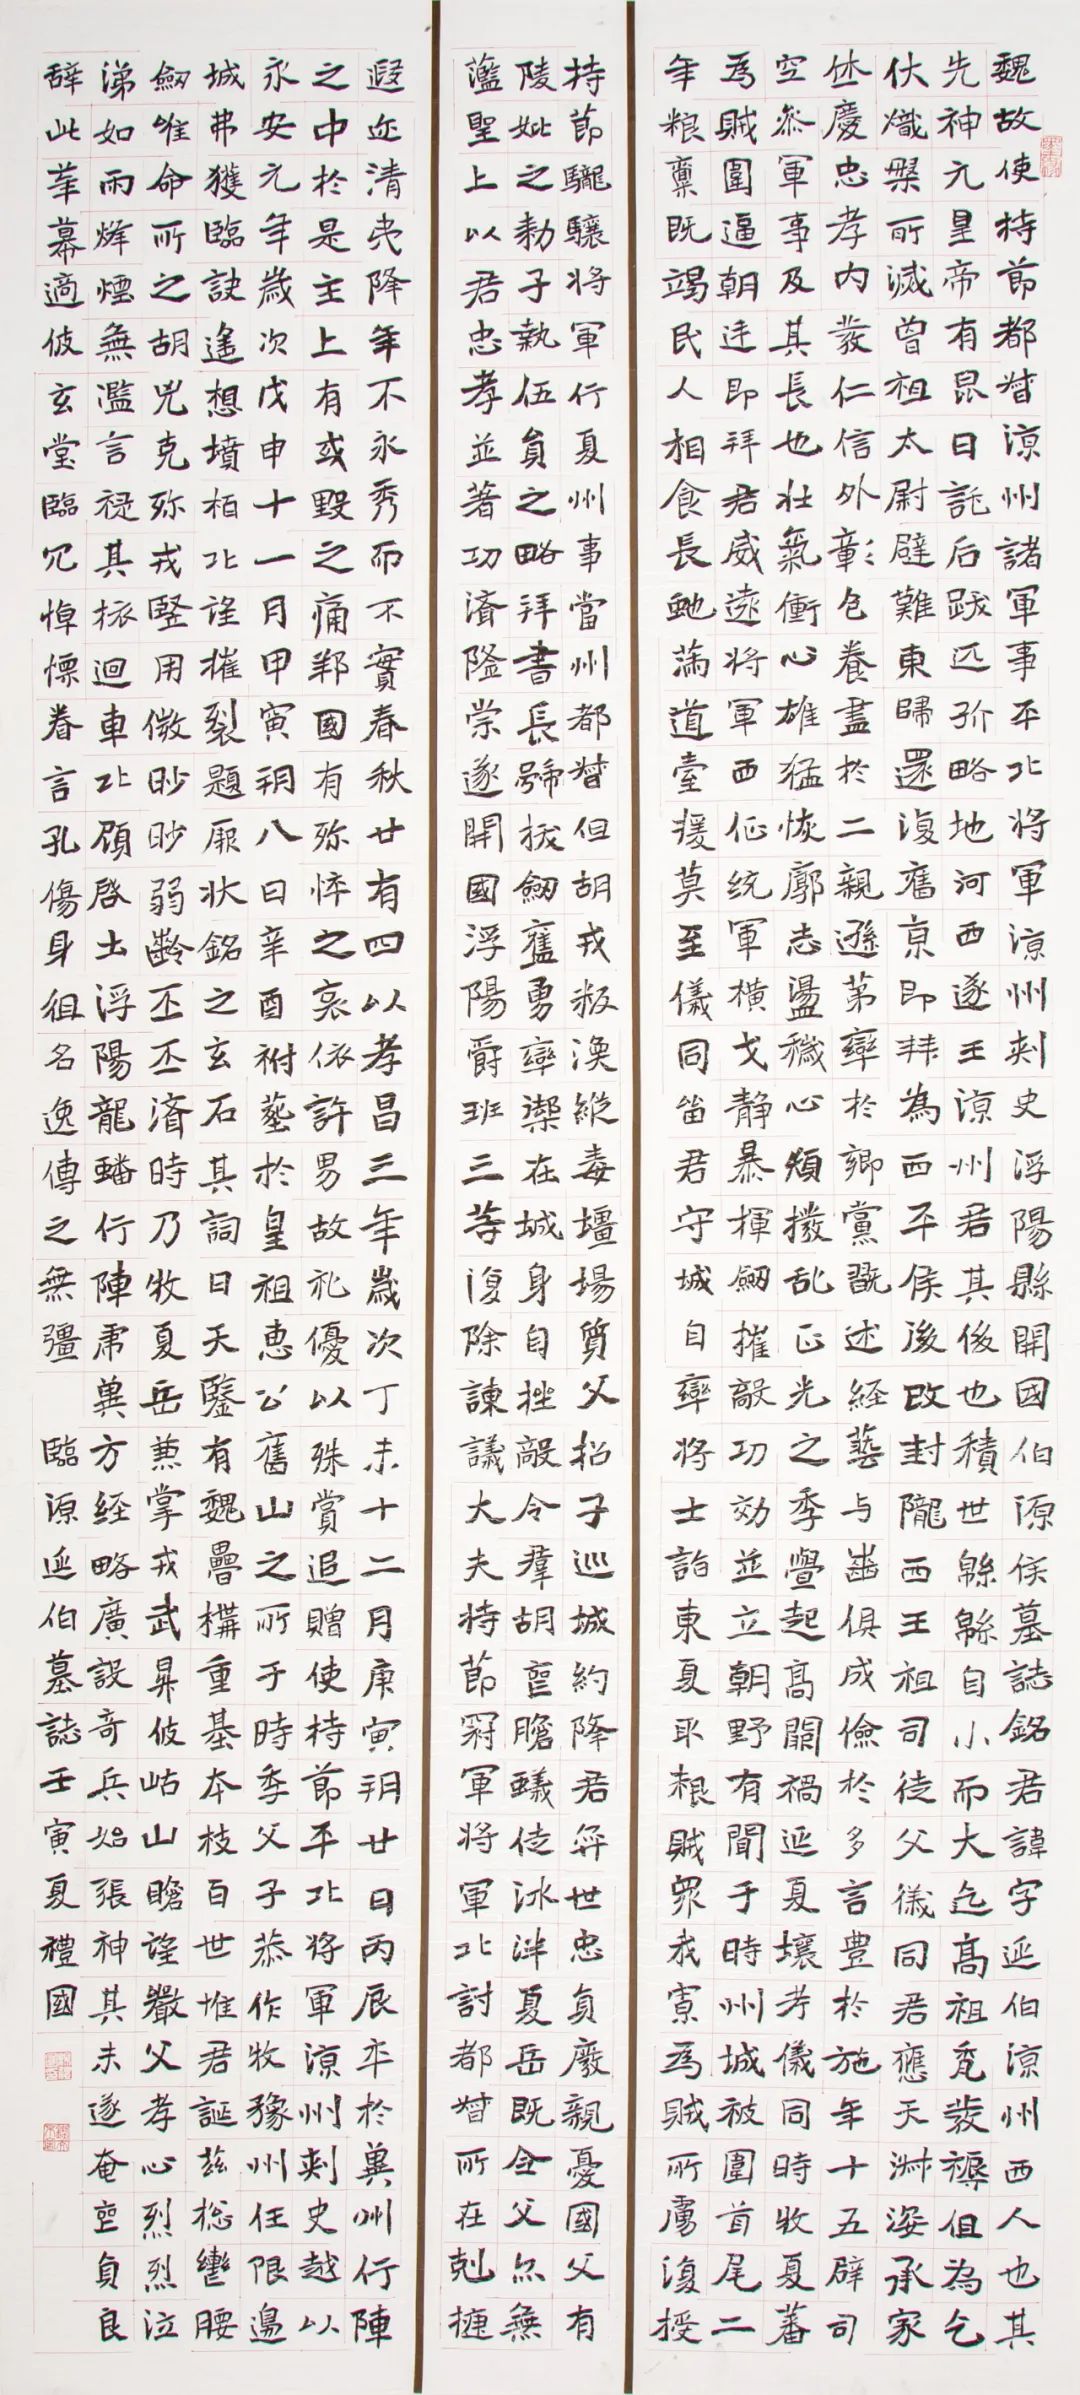 魏故使持節都督涼州諸軍事平北將軍涼州刺史浮陽縣開國伯源侯墓誌銘君諱字延伯涼州西人也其
先神元皇帝有昆曰託后跋匹孤略地河西遂王涼州君其後也積世緜緜自小而大迄高祖禿髮褥但為乞
伏熾槃所滅曾祖太尉避難東歸還復舊京即拜為西平侯後改封隴西王祖司徒父儀同君應天淋姿承家
休慶忠孝內發仁信外彰色養盡於二親遜第率於鄉黨翫述經藝与齒俱成儉於多言豊於施年十五辟司
空叅軍事及其長也壯氣衝心雄猛恢廓志盪穢心頬撥乱正光之季舋起高闕禍延夏壤考儀同時牧夏蕃
爲賊圍逼朝廷即拜君威遠將軍西征統軍橫戈静暴揮劒摧敵功効並立朝野有聞于時州城被圍首尾二
年粮禀既竭民人相食長虵滿道臺援莫至儀同留君守城自率將士詣東夏取粮賊衆我寡爲賊所虜復授
持節驪驤將軍行夏州事當州都督但胡戎叛渙縱毒壇場質父招子巡城約降君弈世忠貞廢親憂國父有
陵妣之勑子執伍員之略拜書長號拔劒舊勇率禊在城身自挫敵令羣胡喪膽蟻徒氷泮夏岳既全父亦無
灆聖上以君忠孝並著功濟隆崇遂開國浮陽爵班三等復除諫議大夫持節冠軍將軍北討都督所在剋捷
遐迩清夷降年不永秀而不實春秋廿有四以孝昌三年歲次丁未十二月庚寅朔廿日丙辰卒於冀州行陣
之中於是主上有或毀之痛鄴國有殄悴之哀依許男故礼優以殊賞追贈使持節平北將軍涼州刺史越以
永安元年歲次戊申十一月甲寅朔八日辛酉祔葬於皇祖惠公舊山之所于時季父子恭作牧豫州任限邊
城弗獲臨訣遙想墳栢北望摧裂題厥狀銘之玄石其詞曰天鑒有魏疊構重基本枝百世惟君誕茲揔轡腰
劒唯命所之胡兇克殄戎竪用儆眇眇弱齡丕丕濟時乃牧夏岳兼掌戎武昇彼岵山瞻望嚴父孝心烈烈泣
涕如雨烽煙無濫言禔其袨迴車北顧啓土浮陽龍蟠行陣虎冀方經略廣設奇兵始張神其未遂奄喪貞良
辭此華幕適彼玄堂臨穴悼慄眷言孔傷身徂名逸傳之無彊 臨源延伯墓誌壬寅夏禮國